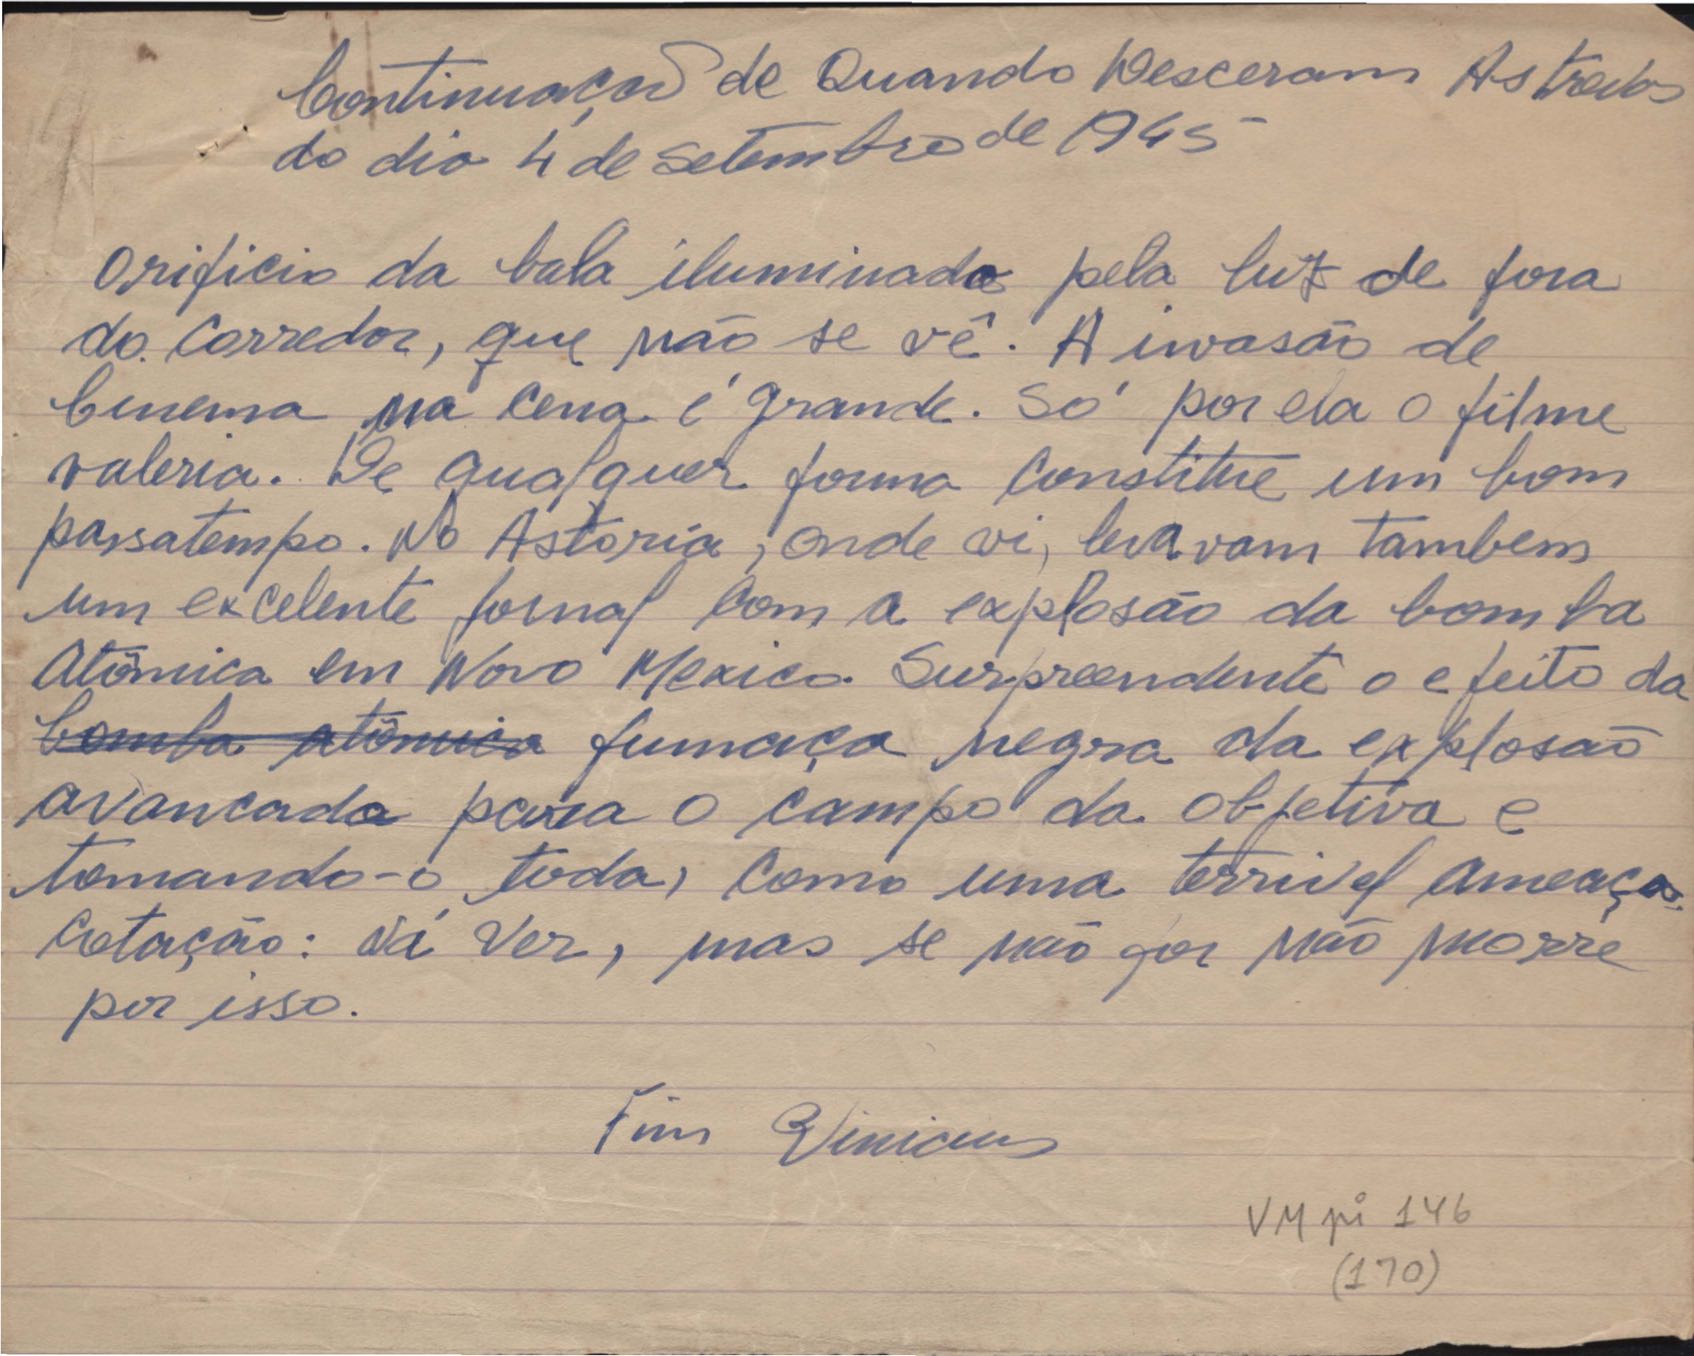 Continuação de Quando Desceram As trevas
do dia 4 de setembro de 1945
orificio da bala iluminado pela luz de fora
do corredor, que não se vê. A invasão de
Cinema na cena é grande. Só por ela o filme
valeria. De qualquer forma constitue um bom
passatempo. No Astoria, onde vi, levavam tambem
um excelente jornal com a explosão da bomba
Atômica em Novo Mexico. Surpreendente o efeito da
bomba atômica fumaça negra da explosão
avancada para o campo da objetiva e
tomando-o toda, como uma terrivel ameaça.
Cotação: Vá ver, mas se não for não morre
por isso.
Fim Vinicius
VM pi 146
(170)